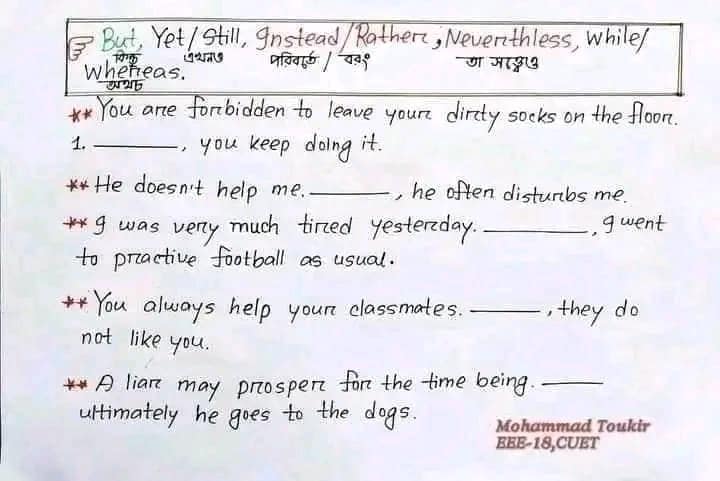 But, Yet/Still, Instead/Rather, Neverthless, while/
কিন্তু এখনও পরিবর্তে / বরং তা সত্ত্বেও
Whereas.
অথচ
** You are forbidden to leave your dirty socks on the floor.
1. ________, you keep doing it.
** He doesn't help me. ________, he often disturbs me.
** I was very much tired yesterday. ________, I went
to practive football as usual.
** You always help your classmates. ________, they do
not like you.
** A liar may prosper for the time being. ________
ultimately he goes to the dogs.
Mohammad Toukir
EEE-18,CUET